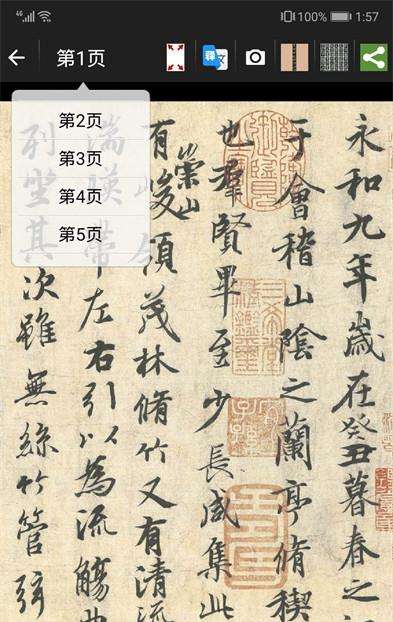 4G 100% 1:57
第1页
第2页
第3页
第4页
第5页
永和九年歲在癸丑暮春之
于會稽山陰之蘭亭脩稧
也羣賢畢至少長咸集此
有崇山峻領茂林脩竹又有清流
湍暎帶左右引以為流觴曲
列坐其次雖無絲竹管弦